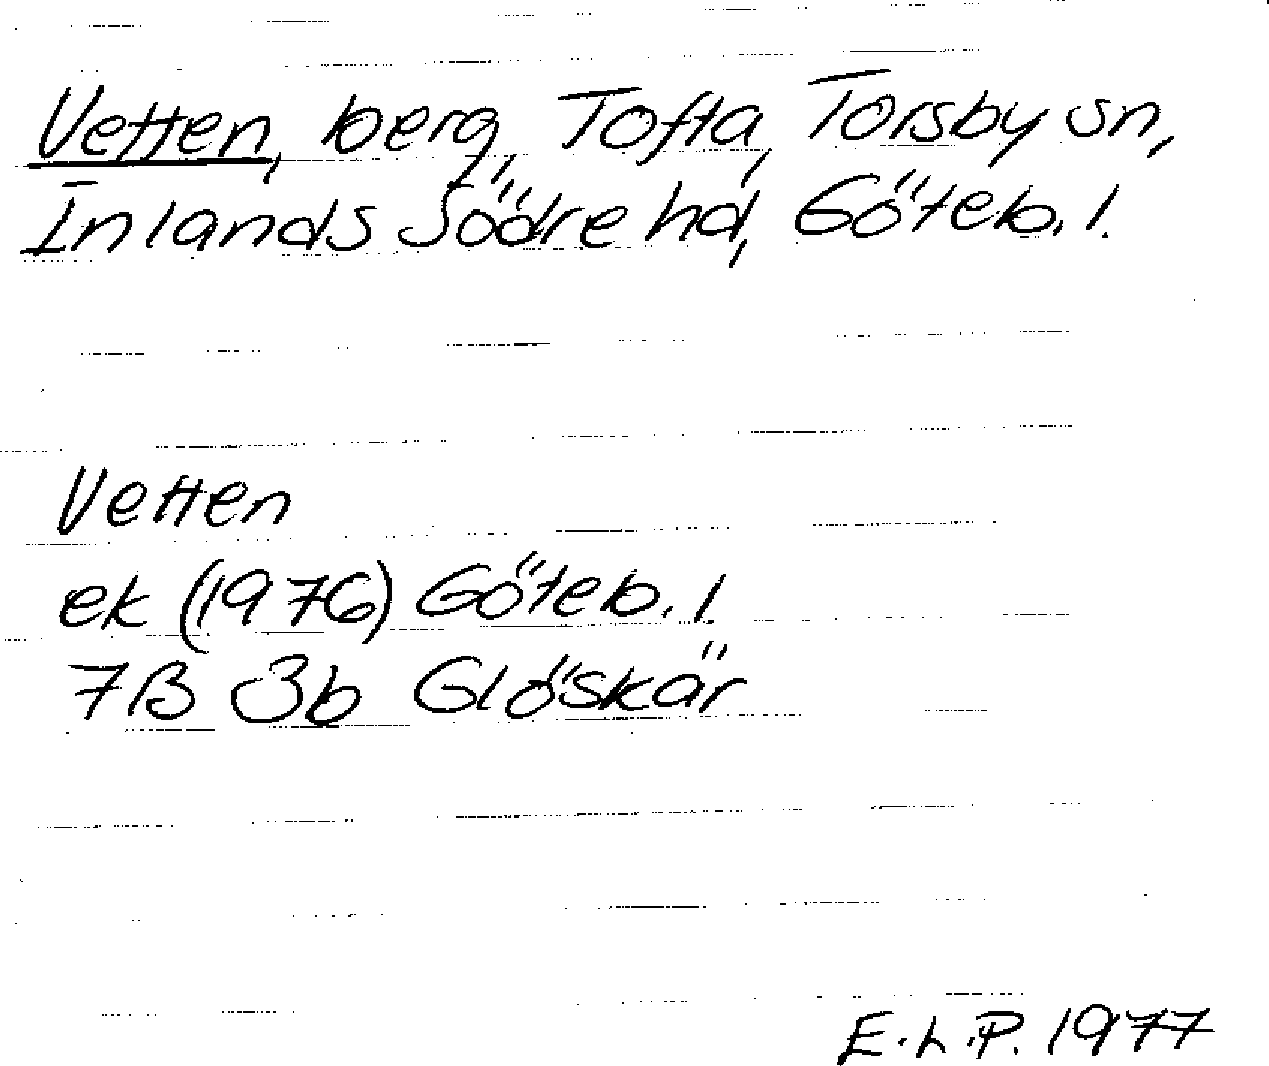 Vetten, berg, Tofta, Torsby sn,
Inlands Södre hd, Göteb. l.
Vetten
ek (1976) Göteb. l.
7B 3b Glöskär
E.L.P. 1977